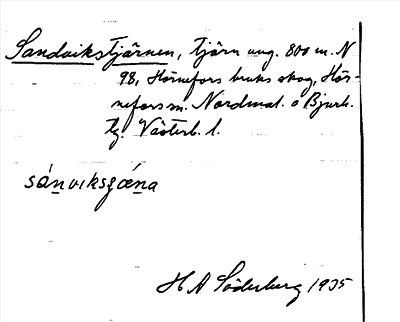 Sandvikstjärnen, tjärn ung. 800 m. N
98, Hörnefors bruks skog, Hör-
nefors sn. Nordmal. o Bjurh.
tg. Västerb. l.
sánviksʃæ̀na
H A Söderberg 1935